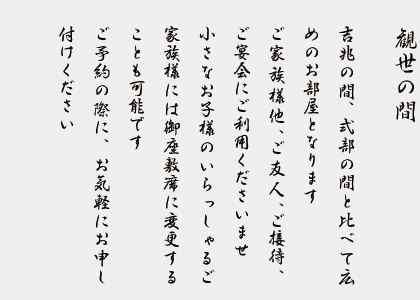 観世の間
吉兆の間、式部の間と比べて広
めのお部屋となります
ご家族様他、ご友人、ご接待、
ご宴会にご利用くださいませ
小さなお子様のいらっしゃるご
家族様には御座敷席に変更する
ことも可能です
ご予約の際に、お気軽にお申し
付けください